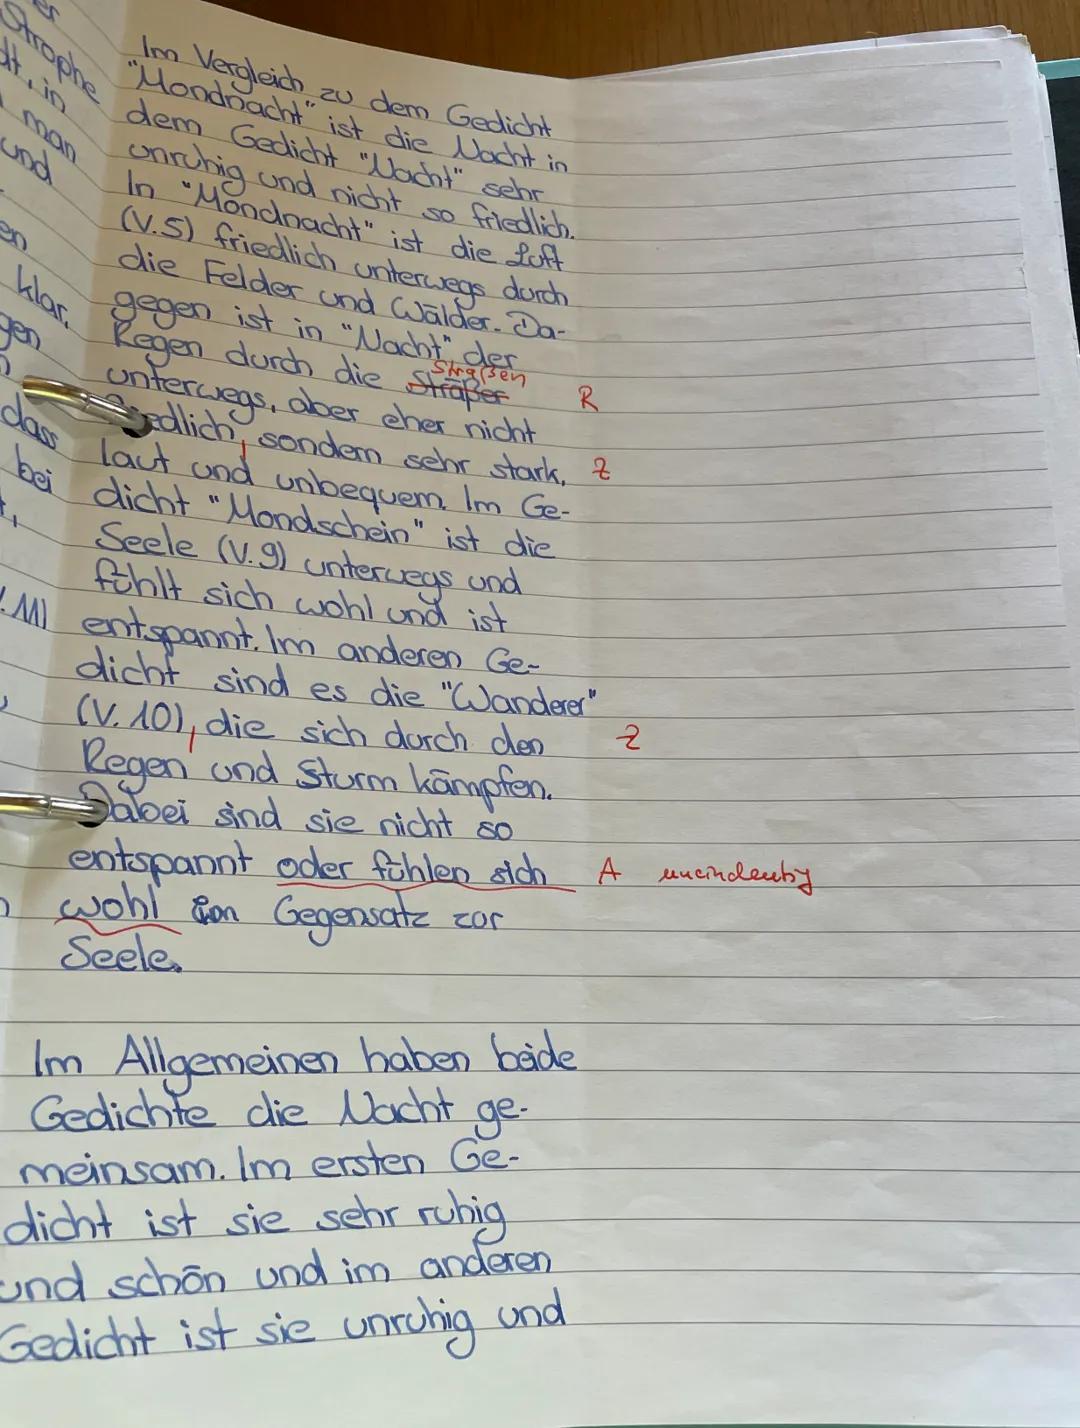 er
Strophe
dt, in
man
und
en
klar,
gen
dass
bei
t,
V. 11)
Im Vergleich zu dem Gedicht
"Mondnacht" ist die Nacht in
dem Gedicht "Nacht" sehr
unruhig und nicht so friedlich.
In "Mondnacht" ist die Luft
(V.5) friedlich unterwegs durch
die Felder und Wälder. Da-
gegen ist in "Nacht" der
Regen durch die Straßen
Straßen R
unterwegs, aber eher nicht
friedlich, sondern sehr stark, Z
laut und unbequem. Im Ge-
dicht "Mondschein" ist die
Seele (V.9) unterwegs und
fühlt sich wohl und ist
entspannt. Im anderen Ge-
dicht sind es die "Wanderer"
(V. 10), die sich durch den Z
Regen und Sturm kämpfen.
Dabei sind sie nicht so
entspannt oder fühlen sich A uneindeutig
wohl im Gegensatz zur
Seele.
Im Allgemeinen haben beide
Gedichte die Nacht ge-
meinsam. Im ersten Ge-
dicht ist sie sehr ruhig
und schön und im anderen
Gedicht ist sie unruhig und